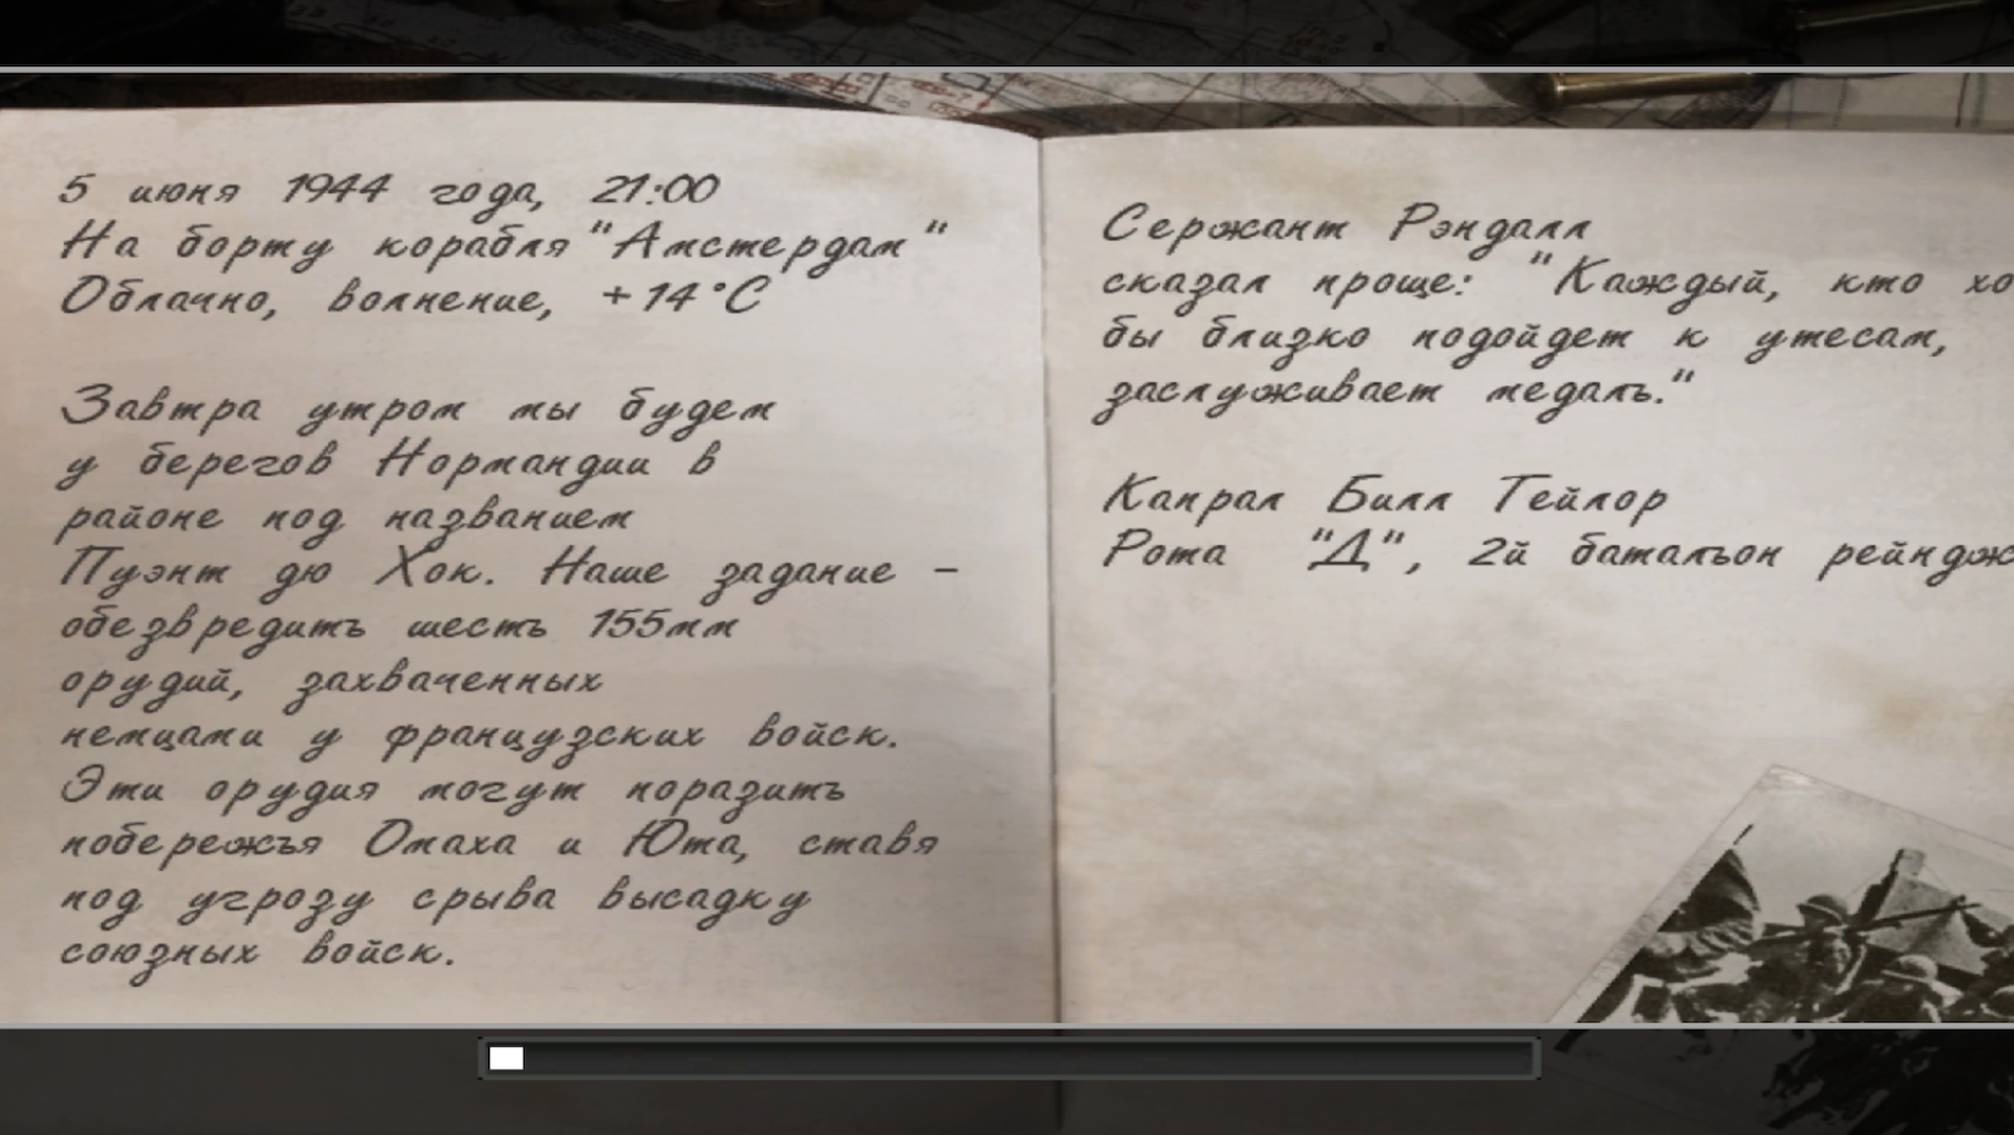 5 июня 1944 года, 21:00
На борту корабля "Амстердам"
Облачно, волнение, +14°C
Завтра утром мы будем
у берегов Нормандии в
районе под названием
Пуэнт дю Хок. Наше задание -
обезвредить шесть 155мм
орудий, захваченных
немцами у французских войск.
Эти орудия могут поразить
побережья Омаха и Юта, ставя
под угрозу срыва высадку
союзных войск.
Сержант Рэндалл
сказал проще: "Каждый, кто хо
бы близко подойдет к утесам,
заслуживает медаль."
Капрал Билл Тейлор
Рота "Д", 2й батальон рейндж